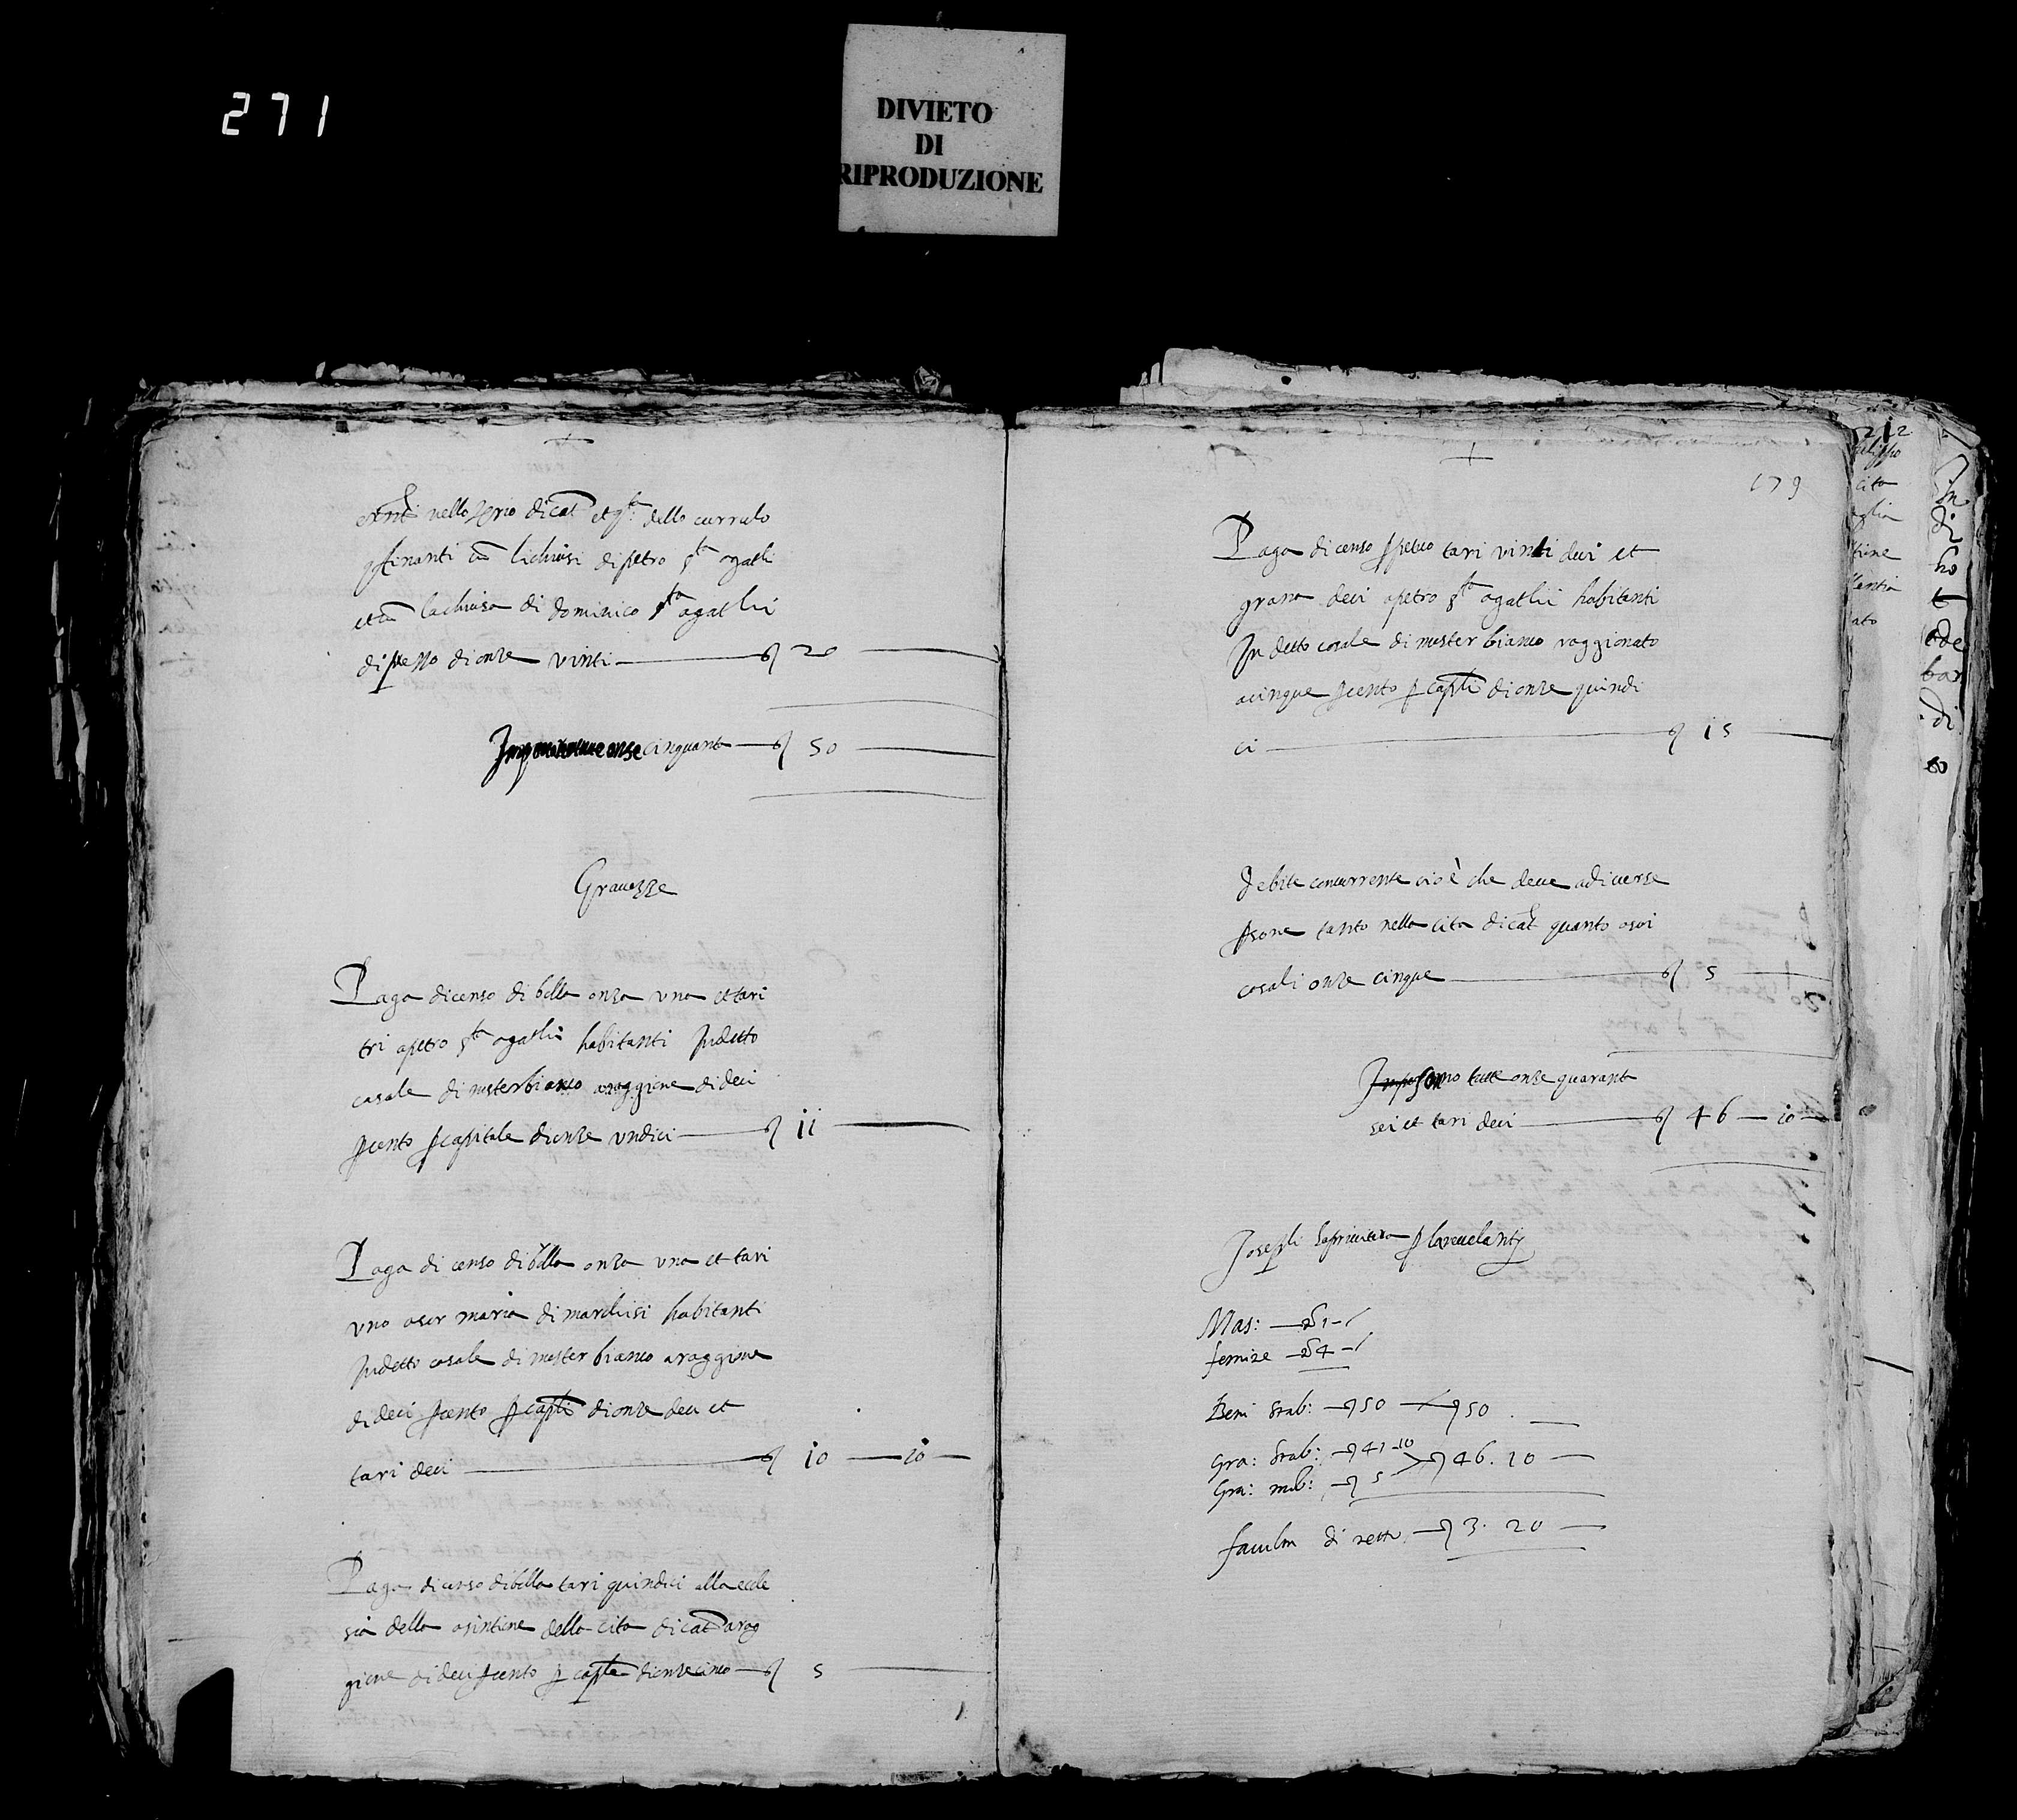 271
DIVIETO
DI
RIPRODUZIONE
nello dicat et dello currulo
finanti lichiusi di petro sta agathi
lachiusa di dominico sta agathi
di prezzo di onze vinti 20
cinquant 50
Gravezze
Paga di censo di bolla onza una et tari
tri a petro sta agathi habitanti In detto
casale di misterbianco a raggione di deci
p cento p capitale di onze undici 11
Paga di censo di bolla onza una et tari
uno a sor maria di marchisi habitanti
In detto casale di mister bianco a raggione
di deci p cento p capti di onze deci et
tari deci 10 10
Paga di censo di bolla tari quindici alla eccle
sia della asintione della cita di cat a rag
gione di deci p cento p di onze cinco 5
179
Paga di censo ppetuo tari vinti dui et
grana deci a petro sta agathii habitanti
In detto casale di mister bianco raggionato
a cinque p cento p capti di onze quindi
ci 15
Debite concurrente cioè che deve a diverse
psone tanto nella cita di cat quanto a soi
casali onze cinque 5
tutte onze quarant
sei et tari deci 46 10
Joseph
Mas: 1
femine 4
Beni stab: 50 50
Gra: stab: 41 10 46. 10
Gra: mob: 5
facultà di netto 3. 20
212
cita
ato
In
di
ho
t
ade
bar
di